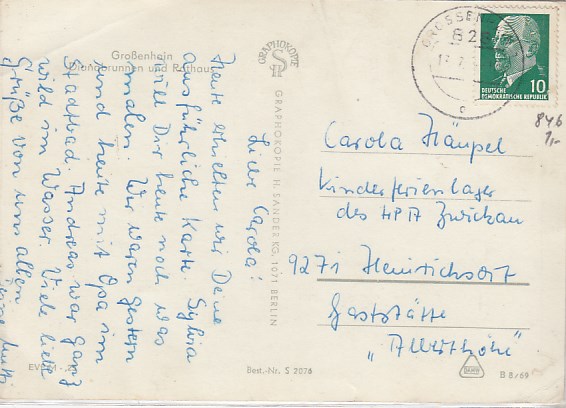 Großenhain
Dianabrunnen und Rathaus
Liebe Carola!
Heute erhielten wir Deine
ausführliche Karte. Sylvia
will Dir heute noch was
malen. Wir waren gestern
und heute mit Opa im
Stadtbad. Andreas war ganz
wild im Wasser. Viele liebe
Grüße von uns allen
Deine Mutti
GRAPHOKOPIE
GRAPHOKOPIE H. SANDER KG, 1071 BERLIN
GROSSEN
828
DEUTSCHE
DEMOKRATISCHE REPUBLIK
10
846
1,-
Carola Häupel
Kinderferienlager
des HPA Zwickau
9271 Heinrichsort
Gaststätte
"
Best.-Nr. S 2076
B 8/69